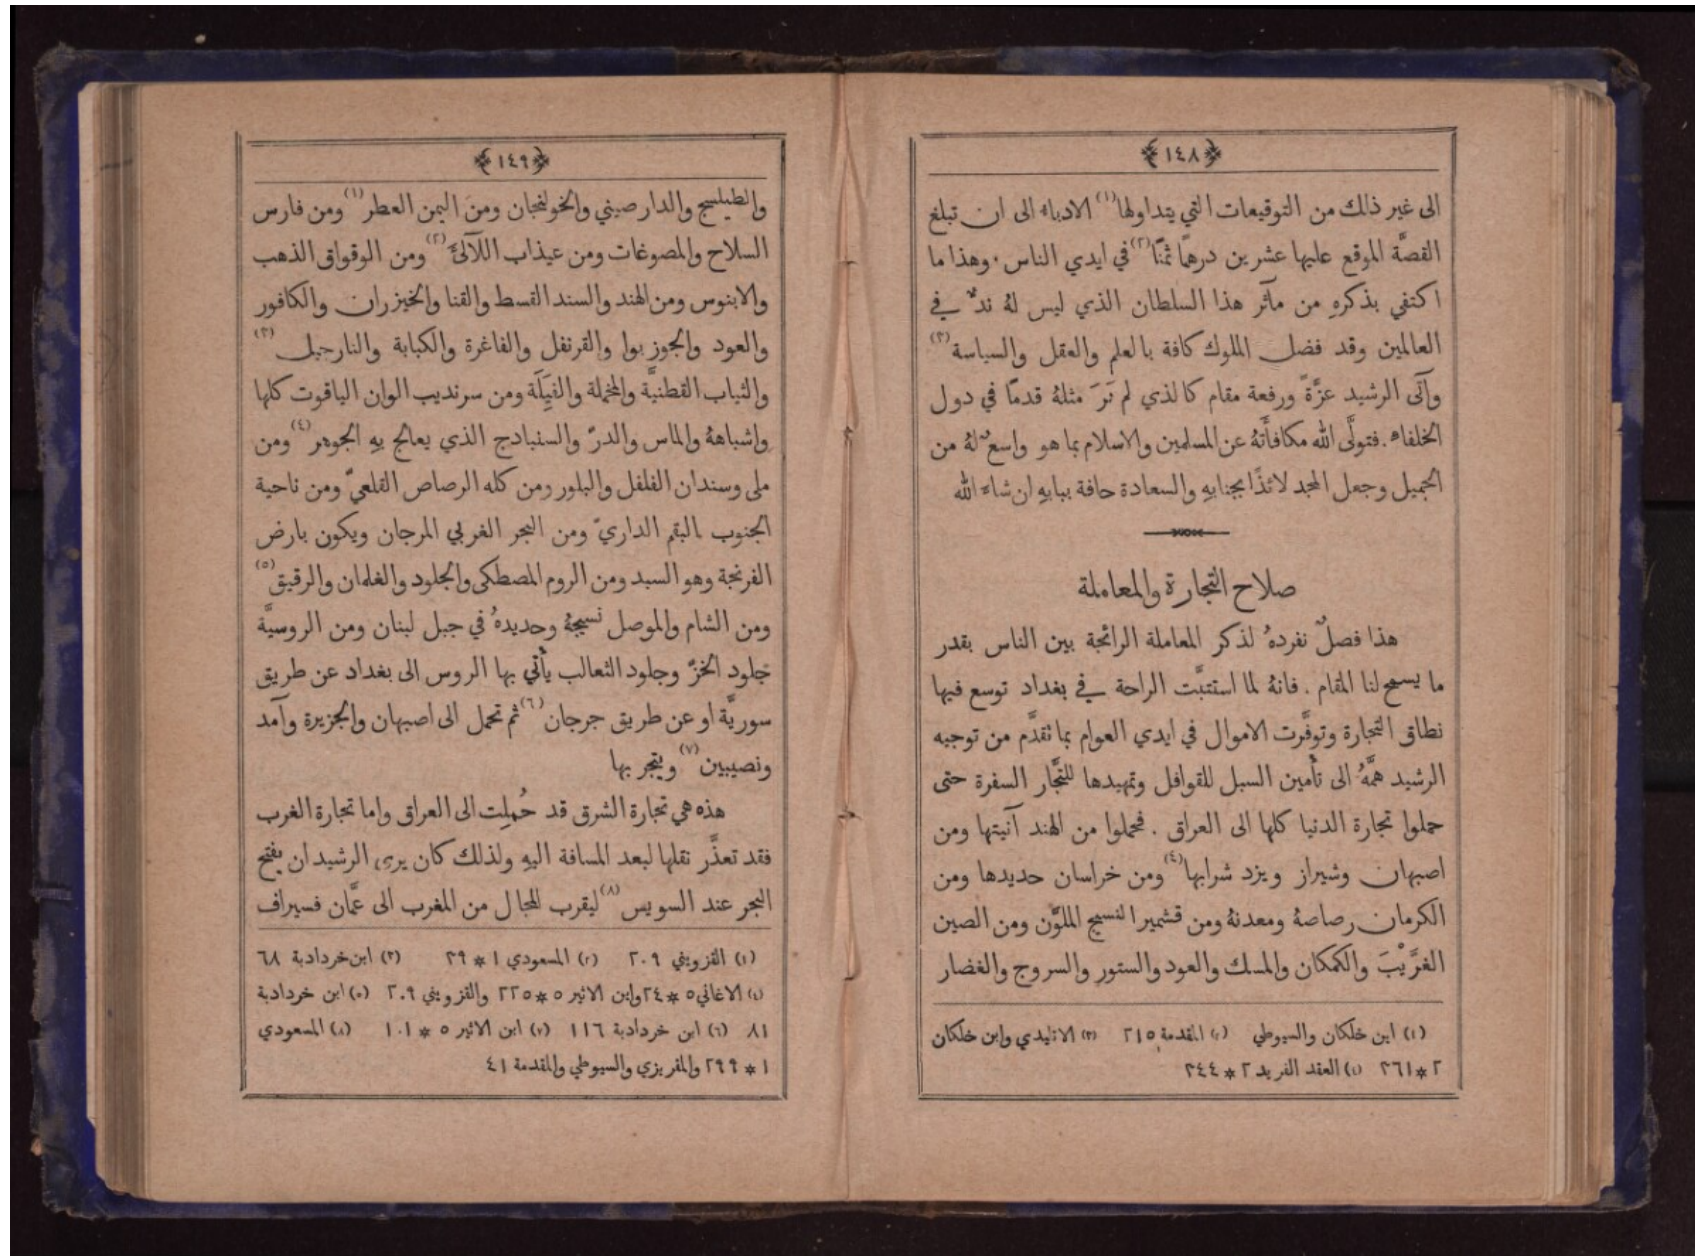 ﴿١٤٨﴾
الى غير ذلك من التوقيعات التي يتداولها(١) الادباء الى ان تبلغ
القصَّة الموقع عليها عشرين درهمًا ثمنًا(٢) في ايدي الناس. وهذا ما
اكتفي بذكرهِ من مآثر هذا السلطان الذي ليس لهُ ندٌّ في
العالمين وقد فضل الملوك كافة بالعلم والعقل والسياسة(٣)
وآتى الرشيد عزَّةً ورفعة مقام كالذي لم نَرَ مثلهُ قدمًا في دول
الخلفاء. فتولَّى الله مكافأَتهُ عن المسلمين والاسلام بما هو واسعٌ لهُ من
الجميل وجعل المجد لائذًا بجنابهِ والسعادة حافة ببابهِ ان شاء الله
صلاح التجارة والمعاملة
هذا فصلٌ نفردهُ لذكر المعاملة الرائجة بين الناس بقدر
ما يسمح لنا المقام. فانهُ لما استتبَّت الراحة في بغداد توسع فيها
نطاق التجارة وتوفَّرت الاموال في ايدي العوام بما تقدَّم من توجيه
الرشيد همَّهُ الى تأمين السبل للقوافل وتمهيدها للتجَّار السفرة حتى
حملوا تجارة الدنيا كلها الى العراق. فحملوا من الهند آنيتها ومن
اصبهان وشيراز ويزد شرابها(٤) ومن خراسان حديدها ومن
الكرمان رصاصهُ ومعدنهُ ومن قشمير النسيج الملوَّن ومن الصين
الغرَّيْبَ والكمكان والمسك والعود والستور والسروج والغضار
(١) ابن خلكان والسيوطي (٢) المقدمة ٢١٥ (٣) الاتليدي وابن خلكان
٢*٢٦١ (٤) العقد الفريد ٢*٢٤٤
﴿١٤٩﴾
والطيلسج والدارصيني والخولنجان ومن اليمن العطر(١) ومن فارس
السلاح والمصوغات ومن عيذاب اللآلئَ(٢) ومن الوقواق الذهب
والابنوس ومن الهند والسند القسط والقنا والخيزران والكافور
والعود والجوزبوا والقرنفل والفاغرة والكبابة والنارجيل(٣)
والثياب القطنيَّة والمخملة والفِيَلَة ومن سرنديب الوان الياقوت كلها
واشباههُ والماس والدرّ والسنبادج الذي يعالج بهِ الجوهر(٤) ومن
ملى وسندان الفلفل والبلور ومن كله الرصاص القلعيّ ومن ناحية
الجنوب البقم الداريّ ومن البحر الغربي المرجان ويكون بارض
الفرنجة وهو السبد ومن الروم المصطكى والجلود والغلمان والرقيق(٥)
ومن الشام والموصل نسيجهُ وحديدهُ في جبل لبنان ومن الروسيَّة
جلود الخزّ وجلود الثعالب يأتي بها الروس الى بغداد عن طريق
سوريَّة او عن طريق جرجان(٦) ثم تحمل الى اصبهان والجزيرة وآمد
ونصيبين(٧) ويتجر بها
هذه هي تجارة الشرق قد حُملت الى العراق واما تجارة الغرب
فقد تعذَّر نقلها لبعد المسافة اليهِ ولذلك كان يرى الرشيد ان يفتح
البحر عند السويس(٨) ليقرب المجال من المغرب الى عمَّان فسيراف
(١) القزويني ٢٠٩ (٢) المسعودي ١*٢٩ (٣) ابن خردادبة ٦٨
(٤) الاغاني ٥*٢٤ وابن الاثير ٥*٢٢٥ والقزويني ٢٠٩ (٥) ابن خردادبة
٨١ (٦) ابن خردادبة ١١٦ (٧) ابن الاثير ٥*١٠١ (٨) المسعودي
١*٢٩٩ والمقريزي والسيوطي والمقدمة ٤١